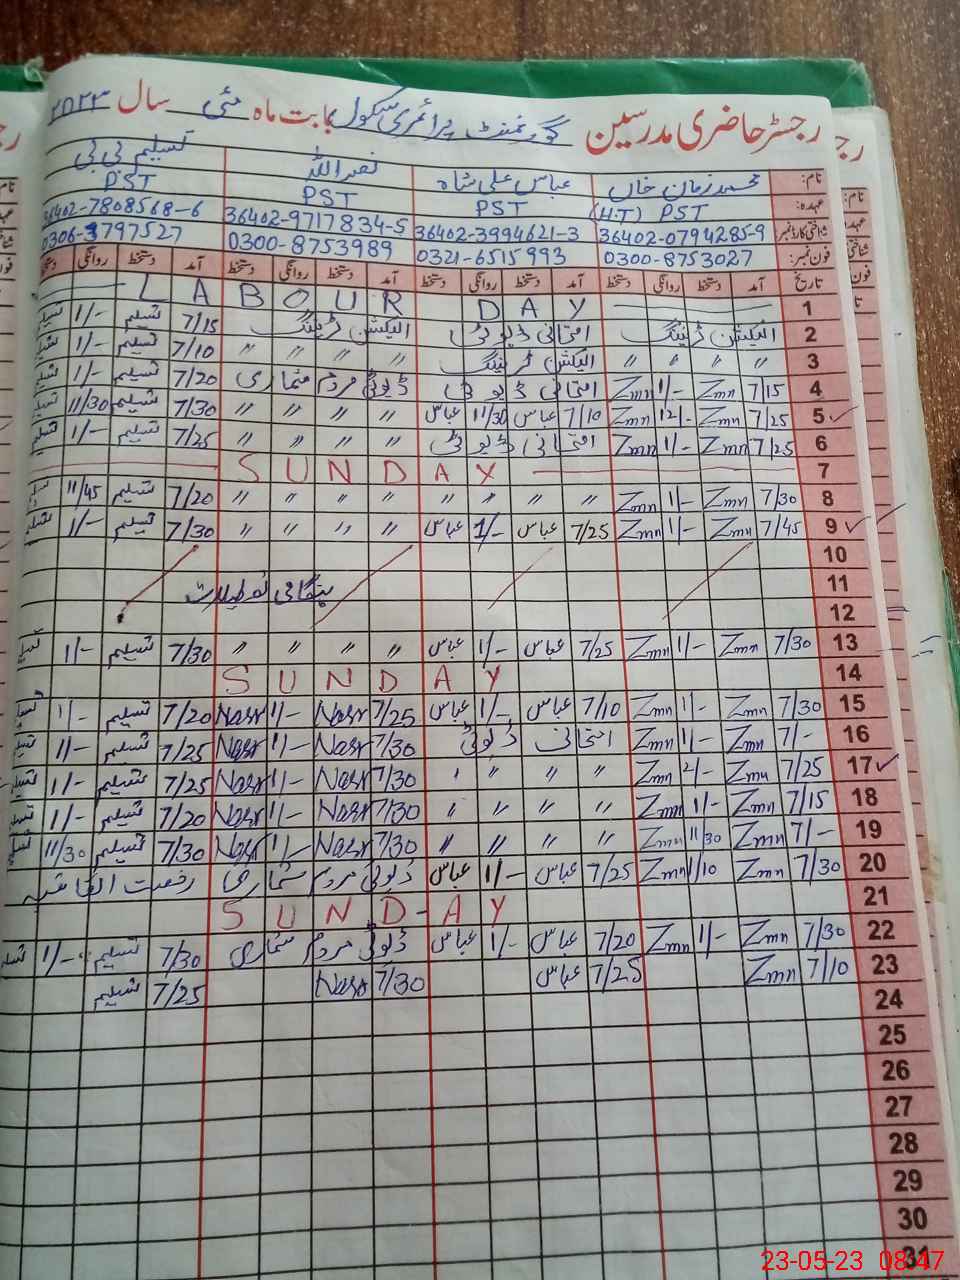 رجسٹر حاضری مدرسین گورنمنٹ پرائمری سکول بابت ماہ مئی سال ۲۰۲۳
نام: محمد زمان خاں عباس علی شاہ نصر اللہ تسلیم بی بی
عہدہ: (H.T) PST PST PST PST
شناختی کارڈ نمبر: 36402-0794285-9 36402-3994621-3 36402-9717834-5 36402-7808568-6
فون نمبر: 0300-8753027 0321-6515993 0300-8753989 0306-3797527
تاریخ آمد دستخط روانگی دستخط آمد دستخط روانگی دستخط آمد دستخط روانگی دستخط آمد دستخط روانگی
1 LABOUR DAY
2 الیکشن ٹریننگ امتحانی ڈیوٹی الیکشن ٹریننگ 7/15 تسلیم 1/-
3 〃 〃 〃 〃 الیکشن ٹریننگ 〃 〃 〃 〃 7/10 تسلیم 1/-
4 7/15 Zmn 1/- Zmn امتحانی ڈیوٹی ڈیوٹی مردم شماری 7/20 تسلیم 1/-
5 7/25 Zmn 12/- Zmn 7/10 عباس 11/30 عباس 〃 〃 〃 〃 7/30 تسلیم 11/30
6 7/25 Zmn 1/- Zmn امتحانی ڈیوٹی 〃 〃 〃 〃 7/25 تسلیم 1/-
7 SUNDAY
8 7/30 Zmn 1/- Zmn 〃 〃 〃 〃 〃 〃 〃 〃 7/20 تسلیم 11/45
9 7/45 Zmn 1/- Zmn 7/25 عباس 1/- عباس 〃 〃 〃 〃 7/30 تسلیم 1/-
10
11 ہنگامی تعطیلات
12
13 7/30 Zmn 1/- Zmn 7/25 عباس 1/- عباس 〃 〃 〃 〃 7/30 تسلیم 1/-
14 SUNDAY
15 7/30 Zmn 1/- Zmn 7/10 عباس 1/- عباس 7/25 Nasr 1/- Nasr 7/20 تسلیم 1/-
16 7/- Zmn 1/- Zmn امتحانی ڈیوٹی 7/30 Nasr 1/- Nasr 7/25 تسلیم 1/-
17 7/25 Zmn 2/- Zmn 〃 〃 〃 〃 7/30 Nasr 1/- Nasr 7/25 تسلیم 1/-
18 7/15 Zmn 1/- Zmn 〃 〃 〃 〃 7/30 Nasr 1/- Nasr 7/20 تسلیم 1/-
19 7/- Zmn 11/30 Zmn 〃 〃 〃 〃 7/30 Nasr 1/- Nasr 7/30 تسلیم 11/30
20 7/30 Zmn 1/10 Zmn 7/25 عباس 1/- عباس ڈیوٹی مردم شماری رخصت اتفاقیہ
21 SUNDAY
22 7/30 Zmn 1/- Zmn 7/20 عباس 1/- عباس ڈیوٹی مردم شماری 7/30 تسلیم 1/- تسلیم
23 7/10 Zmn 7/25 عباس 7/30 Nasr 7/25 تسلیم
24
25
26
27
28
29
30
31
23-05-23 08:47